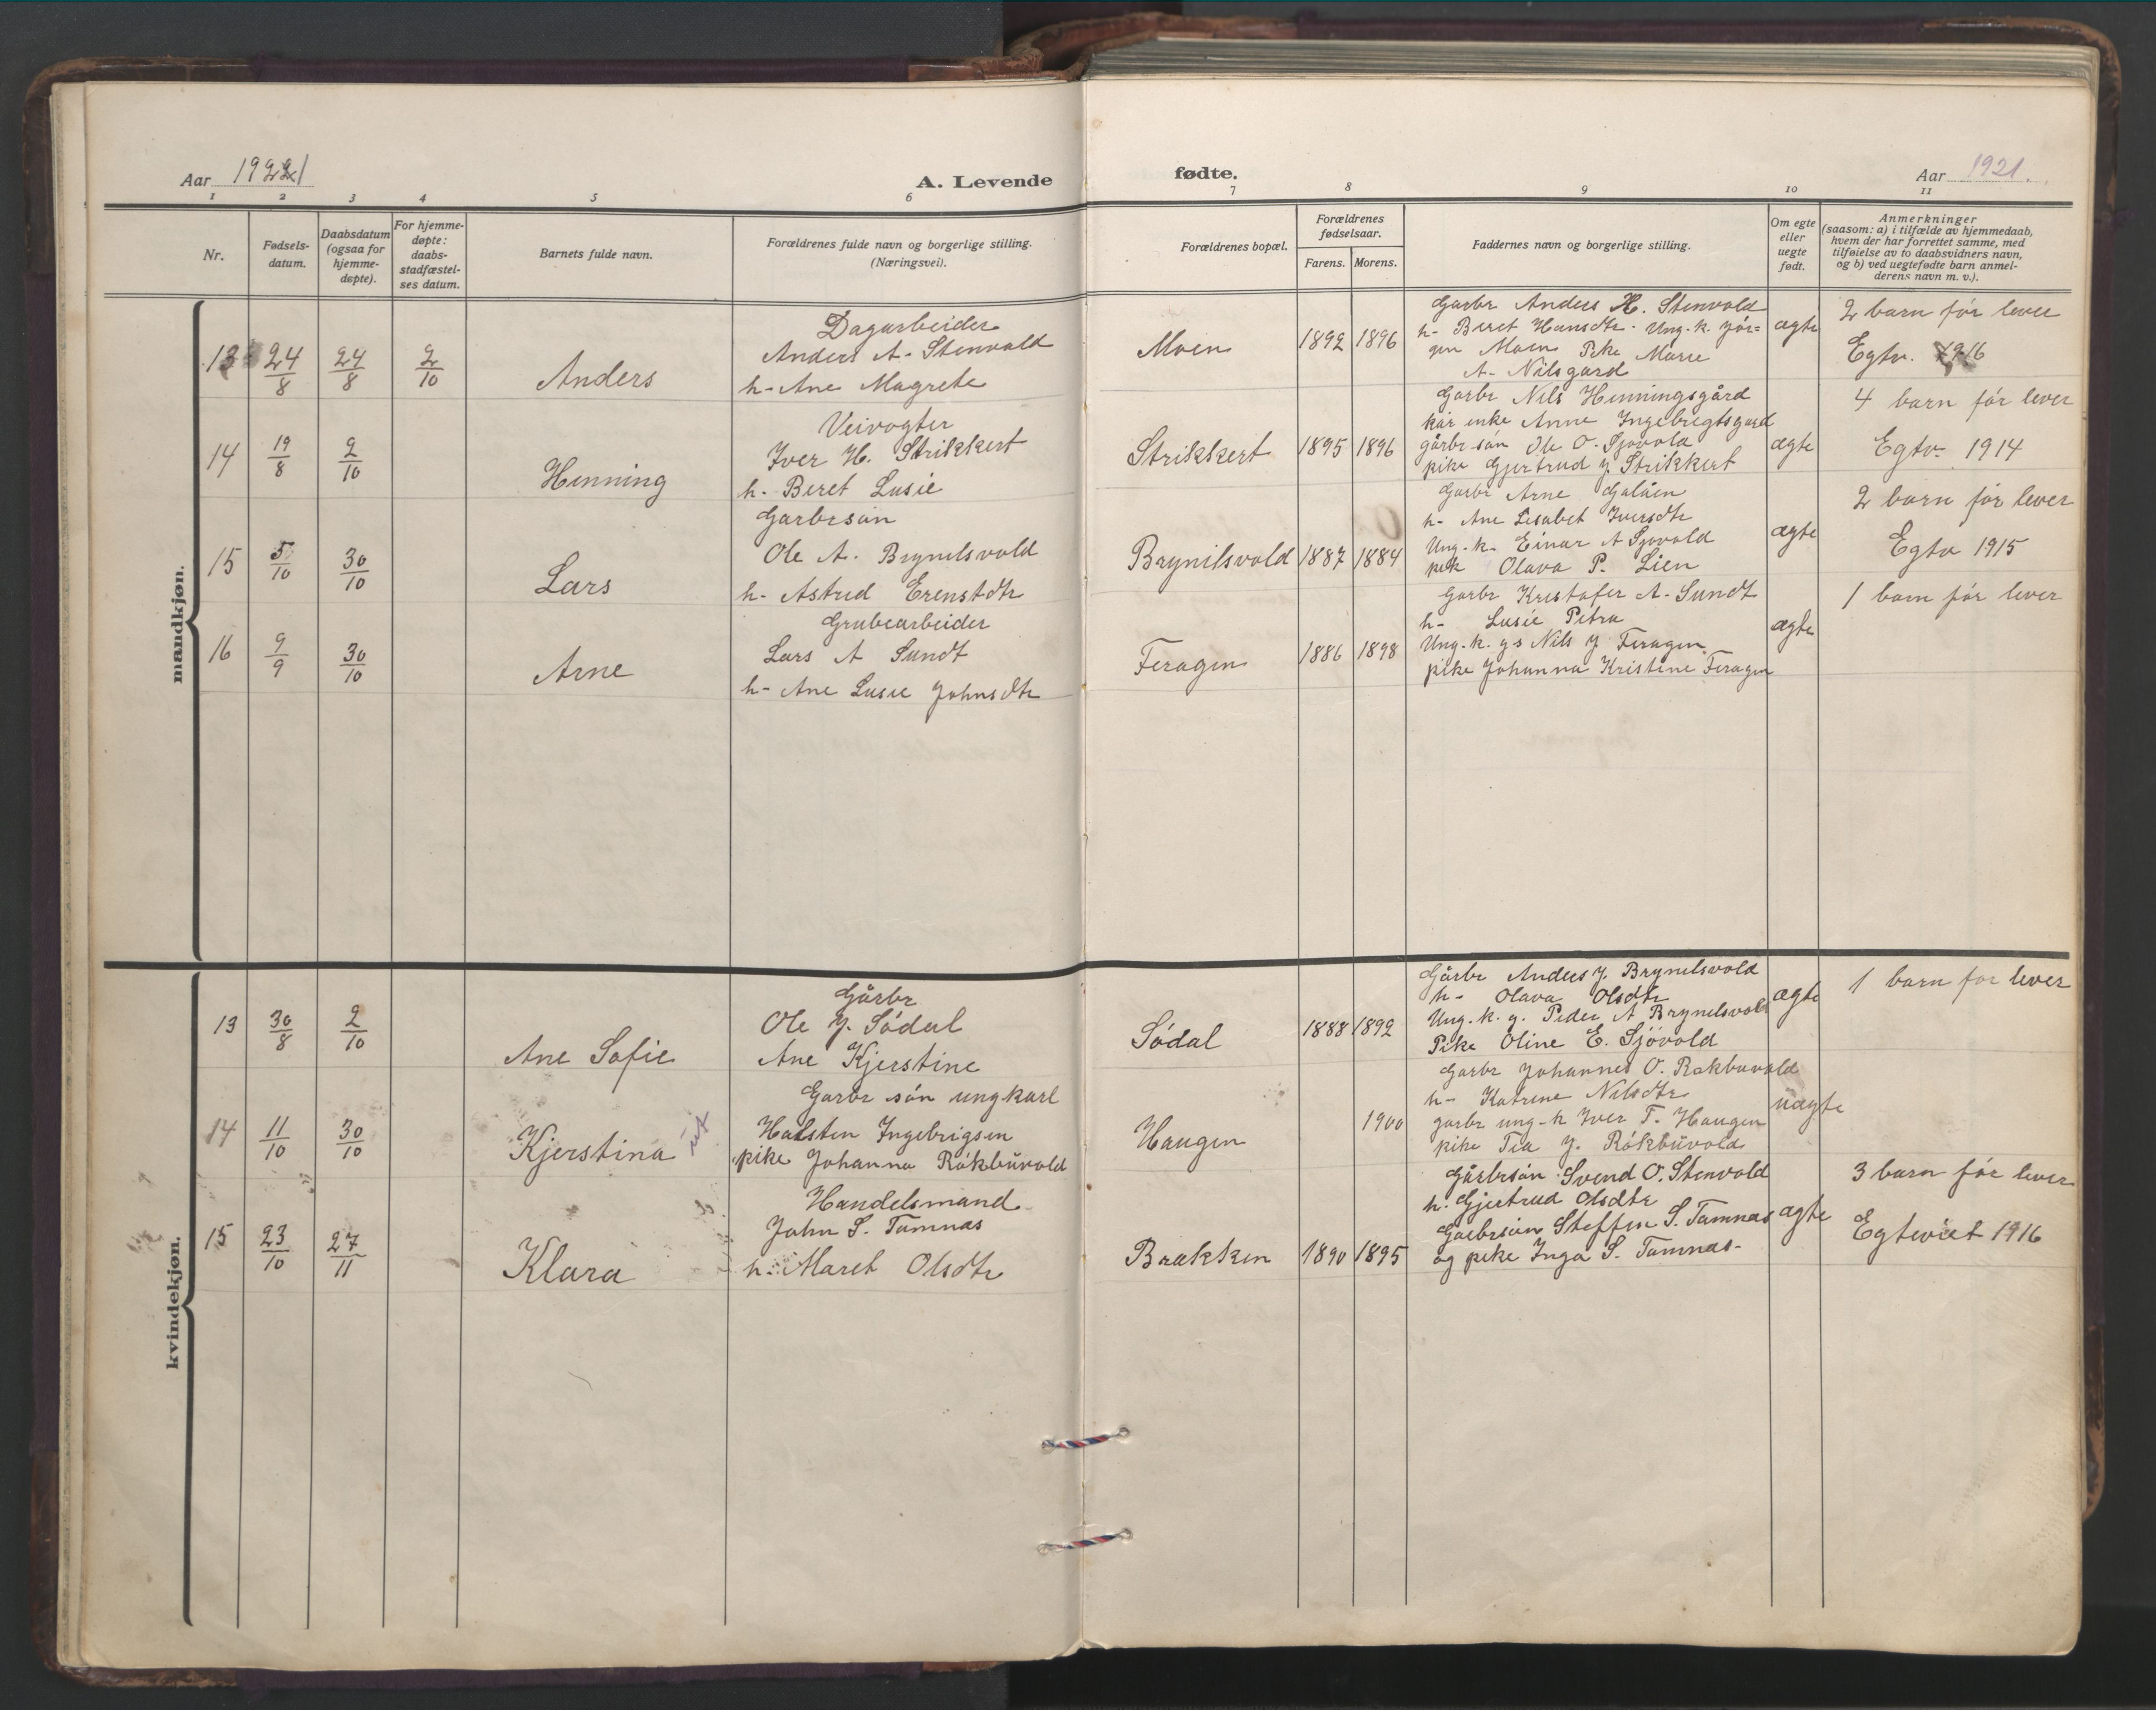 Aar 1921
A. Levende
fødte.
Aar 1921.
1 2 3 4 5 6 7 8 9 10 11
Nr.
Fødsels-
datum.
Daabsdatum
(ogsaa for
hjemme-
døpte).
For hjemme-
døpte:
daabs-
stadfæstel-
ses datum.
Barnets fulde navn.
Forældrenes fulde navn og borgerlige stilling.
(Næringsvei).
Forældrenes bopæl.
Forældrenes
fødselsaar.
Farens. Morens.
Faddernes navn og borgerlige stilling.
Om egte
eller
uegte
født.
Anmerkninger
(saasom: a) i tilfælde av hjemmedaab,
hvem der har forrettet samme, med
tilføielse av to daabsvidners navn,
og b) ved uegtefødte barn anmel-
derens navn m. v.).
mandkjøn.
13 24/8 24/8 2/10
Anders
Dagarbeider
Anders A. Stenvold
h- Ane Magrete
Moen
1892 1896
Garbr Anders H. Stenvold
h- Beret Hansdtr. Ung. k. Jör=
gen Moen Pike Marie
A- Nilsgard
ægte
2 barn før lever
Egtv. 1916
14 19/8 2/10
Henning
Veivogter
Iver H. Strikkert
h. Beret Lusie
Strikkert
1895 1896
Garbr Nils Henningsgård
kår enke Anne Ingebregtsgard
gårbr sön Ole O. Sjovold
pike Gjertrud J Strikkert
ægte
4 barn för lever
Egtv. 1914
15 5/10 30/10
Lars
Garbrsön
Ole A. Brynilsvold
h- Astrid Erenstdtr
Brynilsvold
1887 1884
Garbr Arne Galåen
h- Ane Lisabet Iversdtr
Ung. k. Einar A Sjovold
pik Olava P. Lien
ægte
2 barn för lever
Egtv 1915
16 9/9 30/10
Arne
Grubearbeider
Lars A Sundt
h- Ane Lusie Johnsdtr
Feragen
1886 1898
Garbr Kristofer A. Sundt
h- Lusie Petra
Ung. k. gs Nils J Feragen
pike Johanna Kristine Feragen
ægte
1 barn för lever
kvindekjøn.
13 30/8 2/10
Ane Sofie
Gårbr
Ole J. Södal
Ane Kjerstine
Södal
1888 1892
Gårbr Anders J. Brynilsvold
h- Olava Olsdtr
Ung. k. g. Peder A Brynilsvold
Pike Oline E. Sjövold
ægte
1 barn for lever
14 11/10 30/10
Kjerstina
Garbr sön ungkarl
Halsten Ingebrigsen
pike Johanna Rökbüvold
Haugen
1900
Garbr Johannes O. Rokbuvold
h- Katrine Nilsdtr
garbr ung-k Iver T. Haugen
pike Tea J. Rökbüvold
uægte
15 23/10 27/11
Klara
Handelsmand
John S. Tamnas
h. Maret Olsdtr
Brækken
1890 1895
Gårbrsön Svend O. Stenvold
h. Gjertrud Olsdtr
Garbrsön Steffen S. Tamnas
og pike Inga S. Tamnas-
ægte
3 barn för lever
Egteviet 1916